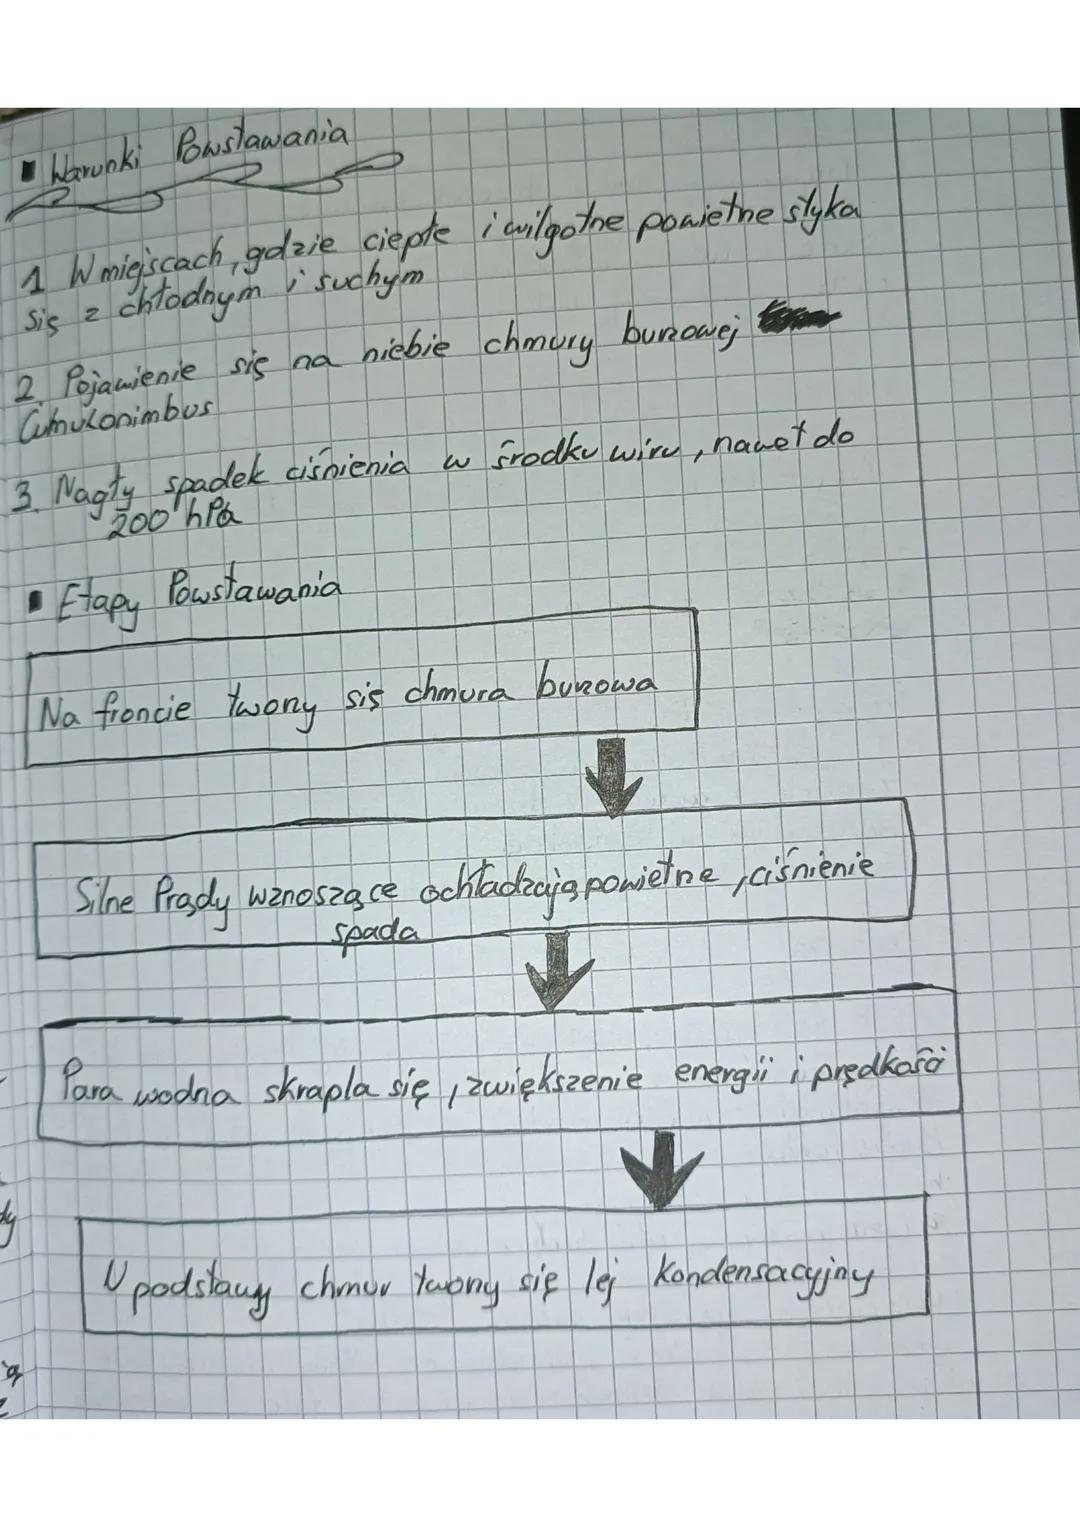 ▪ Warunki Powstawania
1 W miejscach, gdzie ciepłe i wilgotne powietrze styka
się z chłodnym i suchym
2. Pojawienie się na niebie chmury burzowej
Cumulonimbus
3. Nagły spadek ciśnienia w środku wiru, nawet do
200 hPa
▪ Etapy Powstawania
Na froncie tworzy się chmura burzowa
Silne Prądy wznoszące ochładzają powietrze, ciśnienie
spada
Para wodna skrapla się, zwiększenie energii i prędkości
U podstawy chmur tworzy się lej kondensacyjny
dy